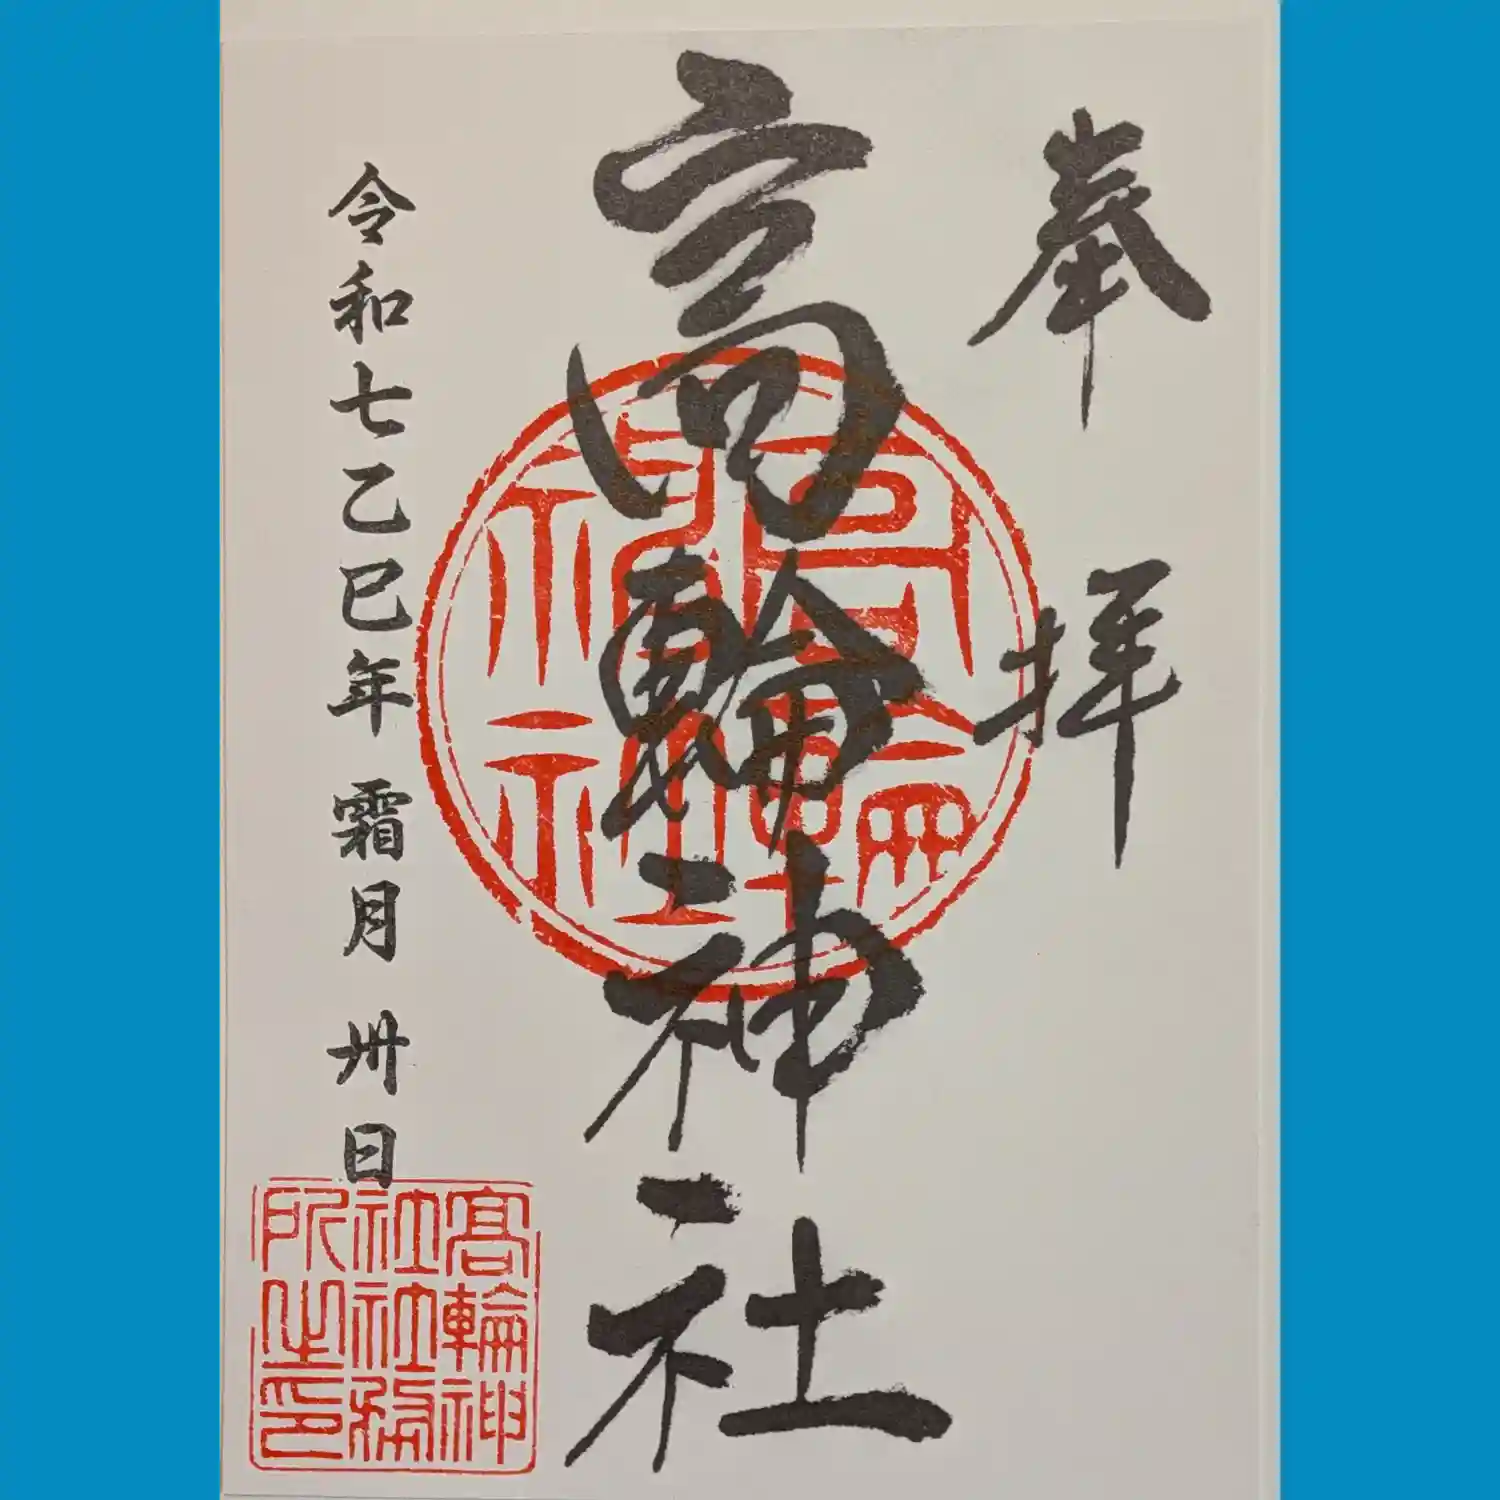 奉拝
高輪神社
令和七乙巳年 霜月 卅日
高輪神社
髙輪神
社社務
所之印